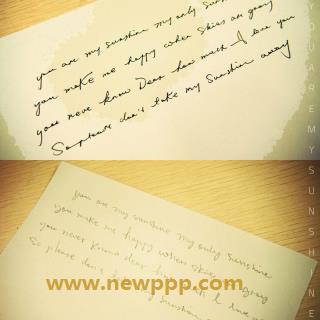 you are my sunshine my only sunsh
you make me happy when skies are gray
you never know Dear how much I love you
So please don't take my sunshine away
you are my sunshine my only sunshine
you make me happy when skies gray
you never know dear how I love
So please don't sunshine
www.newppp.com
YOU ARE MY SUNSHINE